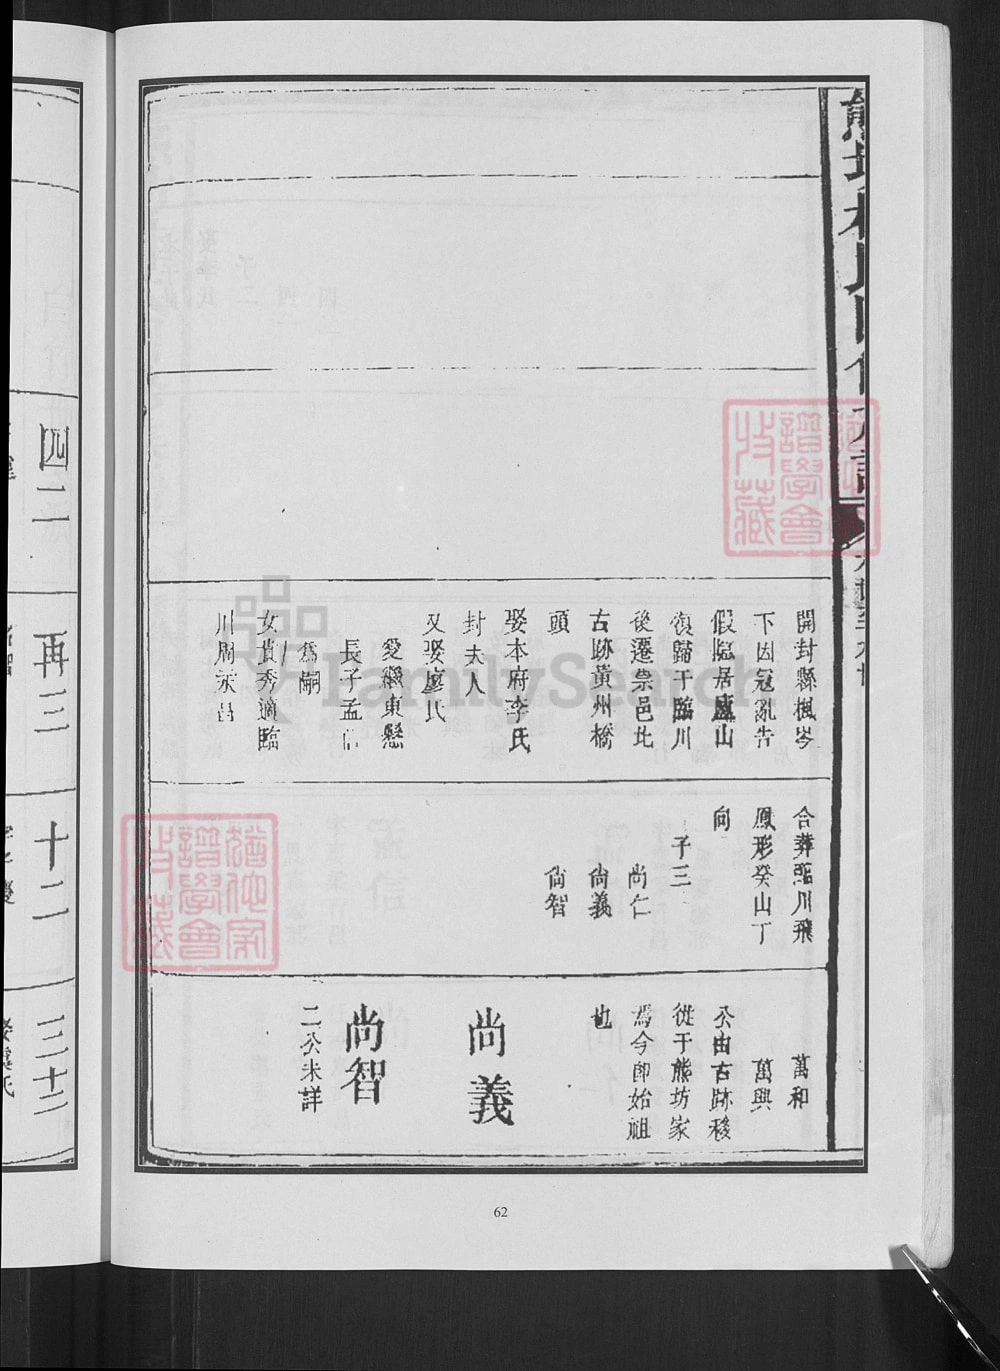 開封縣楓岑
下因冦亂吿
假臨居廬山
復歸于臨川
後遷崇邑北
古跡黃州橋
頭
娶本府李氏
封夫人
又娶廖氏
愛繼東懸
長子孟信
爲嗣
女貞秀適臨
川周榮昌
合葬臨川飛
鳳形癸山丁
向
子三
尚仁
尚義
尚智
萬和
萬興
公由古跡移
從于熊坊家
焉今卽始祖
也
尚義
尚智
二公未詳
譜學會
收藏
猶他家
譜學會
收藏
FamilySearch
四二
再三
十二
三十二
62